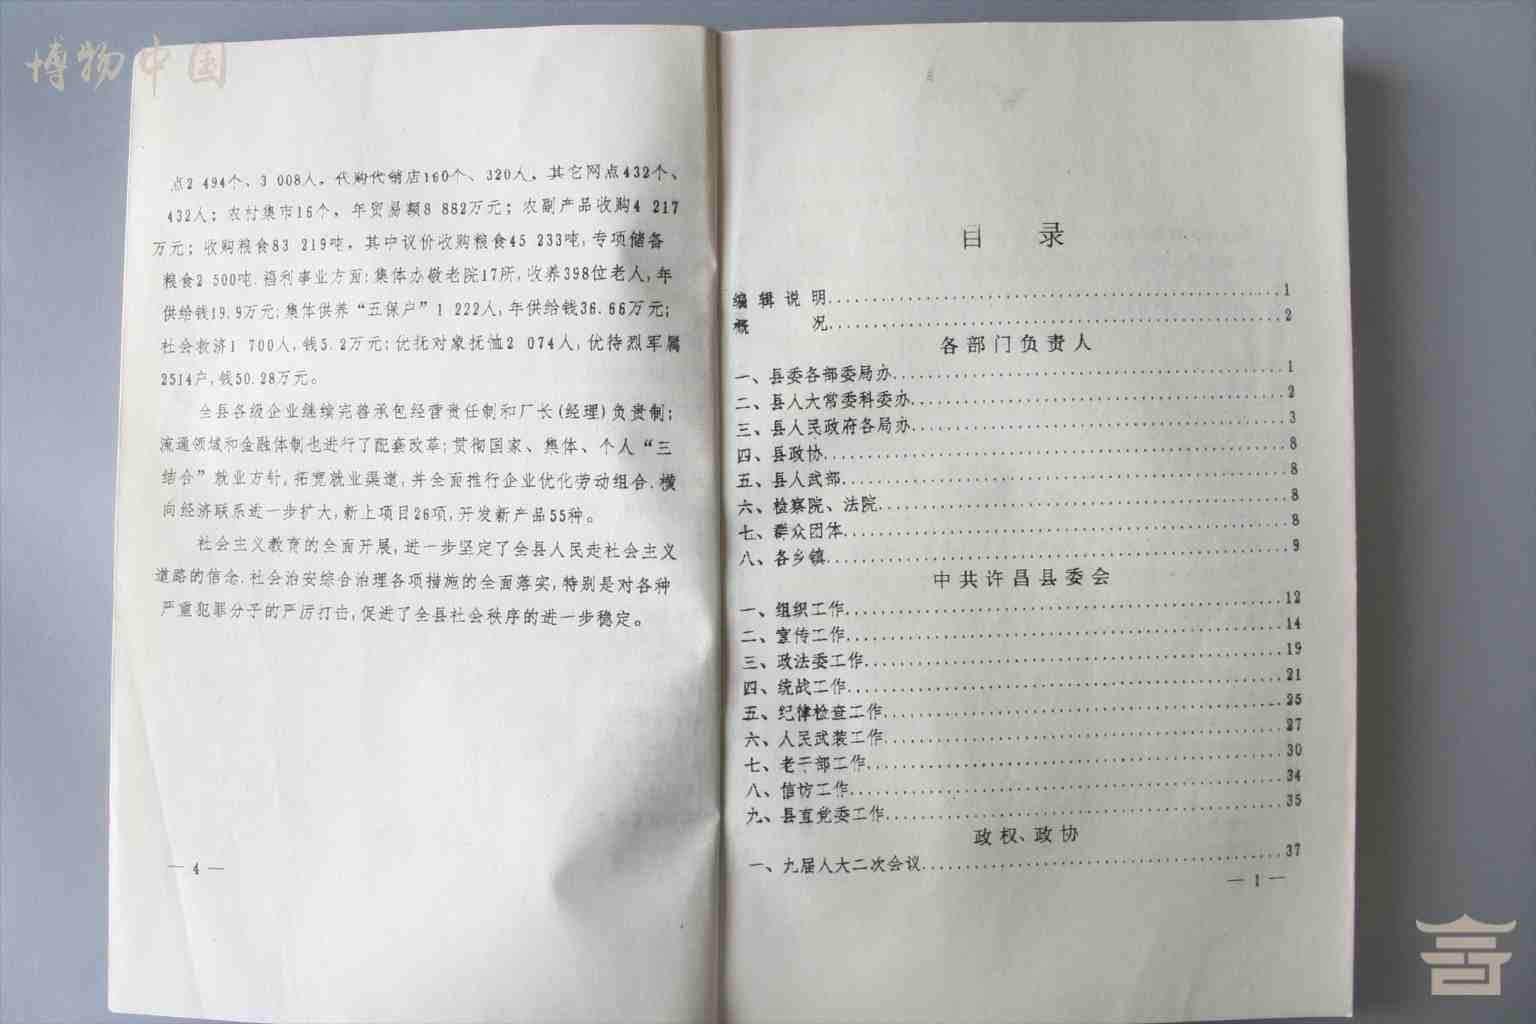 博物中国
点2 494个、3 008人，代购代销店160个、320人，其它网点432个、
432人；农村集市16个，年贸易额8 882万元；农副产品收购4 217
万元；收购粮食83 219吨，其中议价收购粮食45 233吨，专项储备
粮食2 500吨．福利事业方面：集体办敬老院17所，收养398位老人，年
供给钱19.9万元；集体供养“五保户”1 222人，年供给钱36.66万元；
社会救济1 700人，钱5.2万元；优抚对象抚恤2 074人，优待烈军属
2514户，钱50.28万元。
全县各级企业继续完善承包经营责任制和厂长(经理)负责制；
流通领域和金融体制也进行了配套改革；贯彻国家、集体、个人“三
结合”就业方针，拓宽就业渠道，并全面推行企业优化劳动组合．横
向经济联系进一步扩大，新上项目26项，开发新产品55种。
社会主义教育的全面开展，进一步坚定了全县人民走社会主义
道路的信念．社会治安综合治理各项措施的全面落实，特别是对各种
严重犯罪分子的严厉打击，促进了全县社会秩序的进一步稳定。
— 4 —
目 录
编辑说明……1
概 况……2
各部门负责人
一、县委各部委局办……1
二、县人大常委科委办……2
三、县人民政府各局办……3
四、县政协……8
五、县人武部……8
六、检察院、法院……8
七、群众团体……8
八、各乡镇……9
中共许昌县委会
一、组织工作……12
二、宣传工作……14
三、政法委工作……19
四、统战工作……21
五、纪律检查工作……25
六、人民武装工作……27
七、老干部工作……30
八、信访工作……34
九、县直党委工作……35
政权、政协
一、九届人大二次会议……37
— 1 —